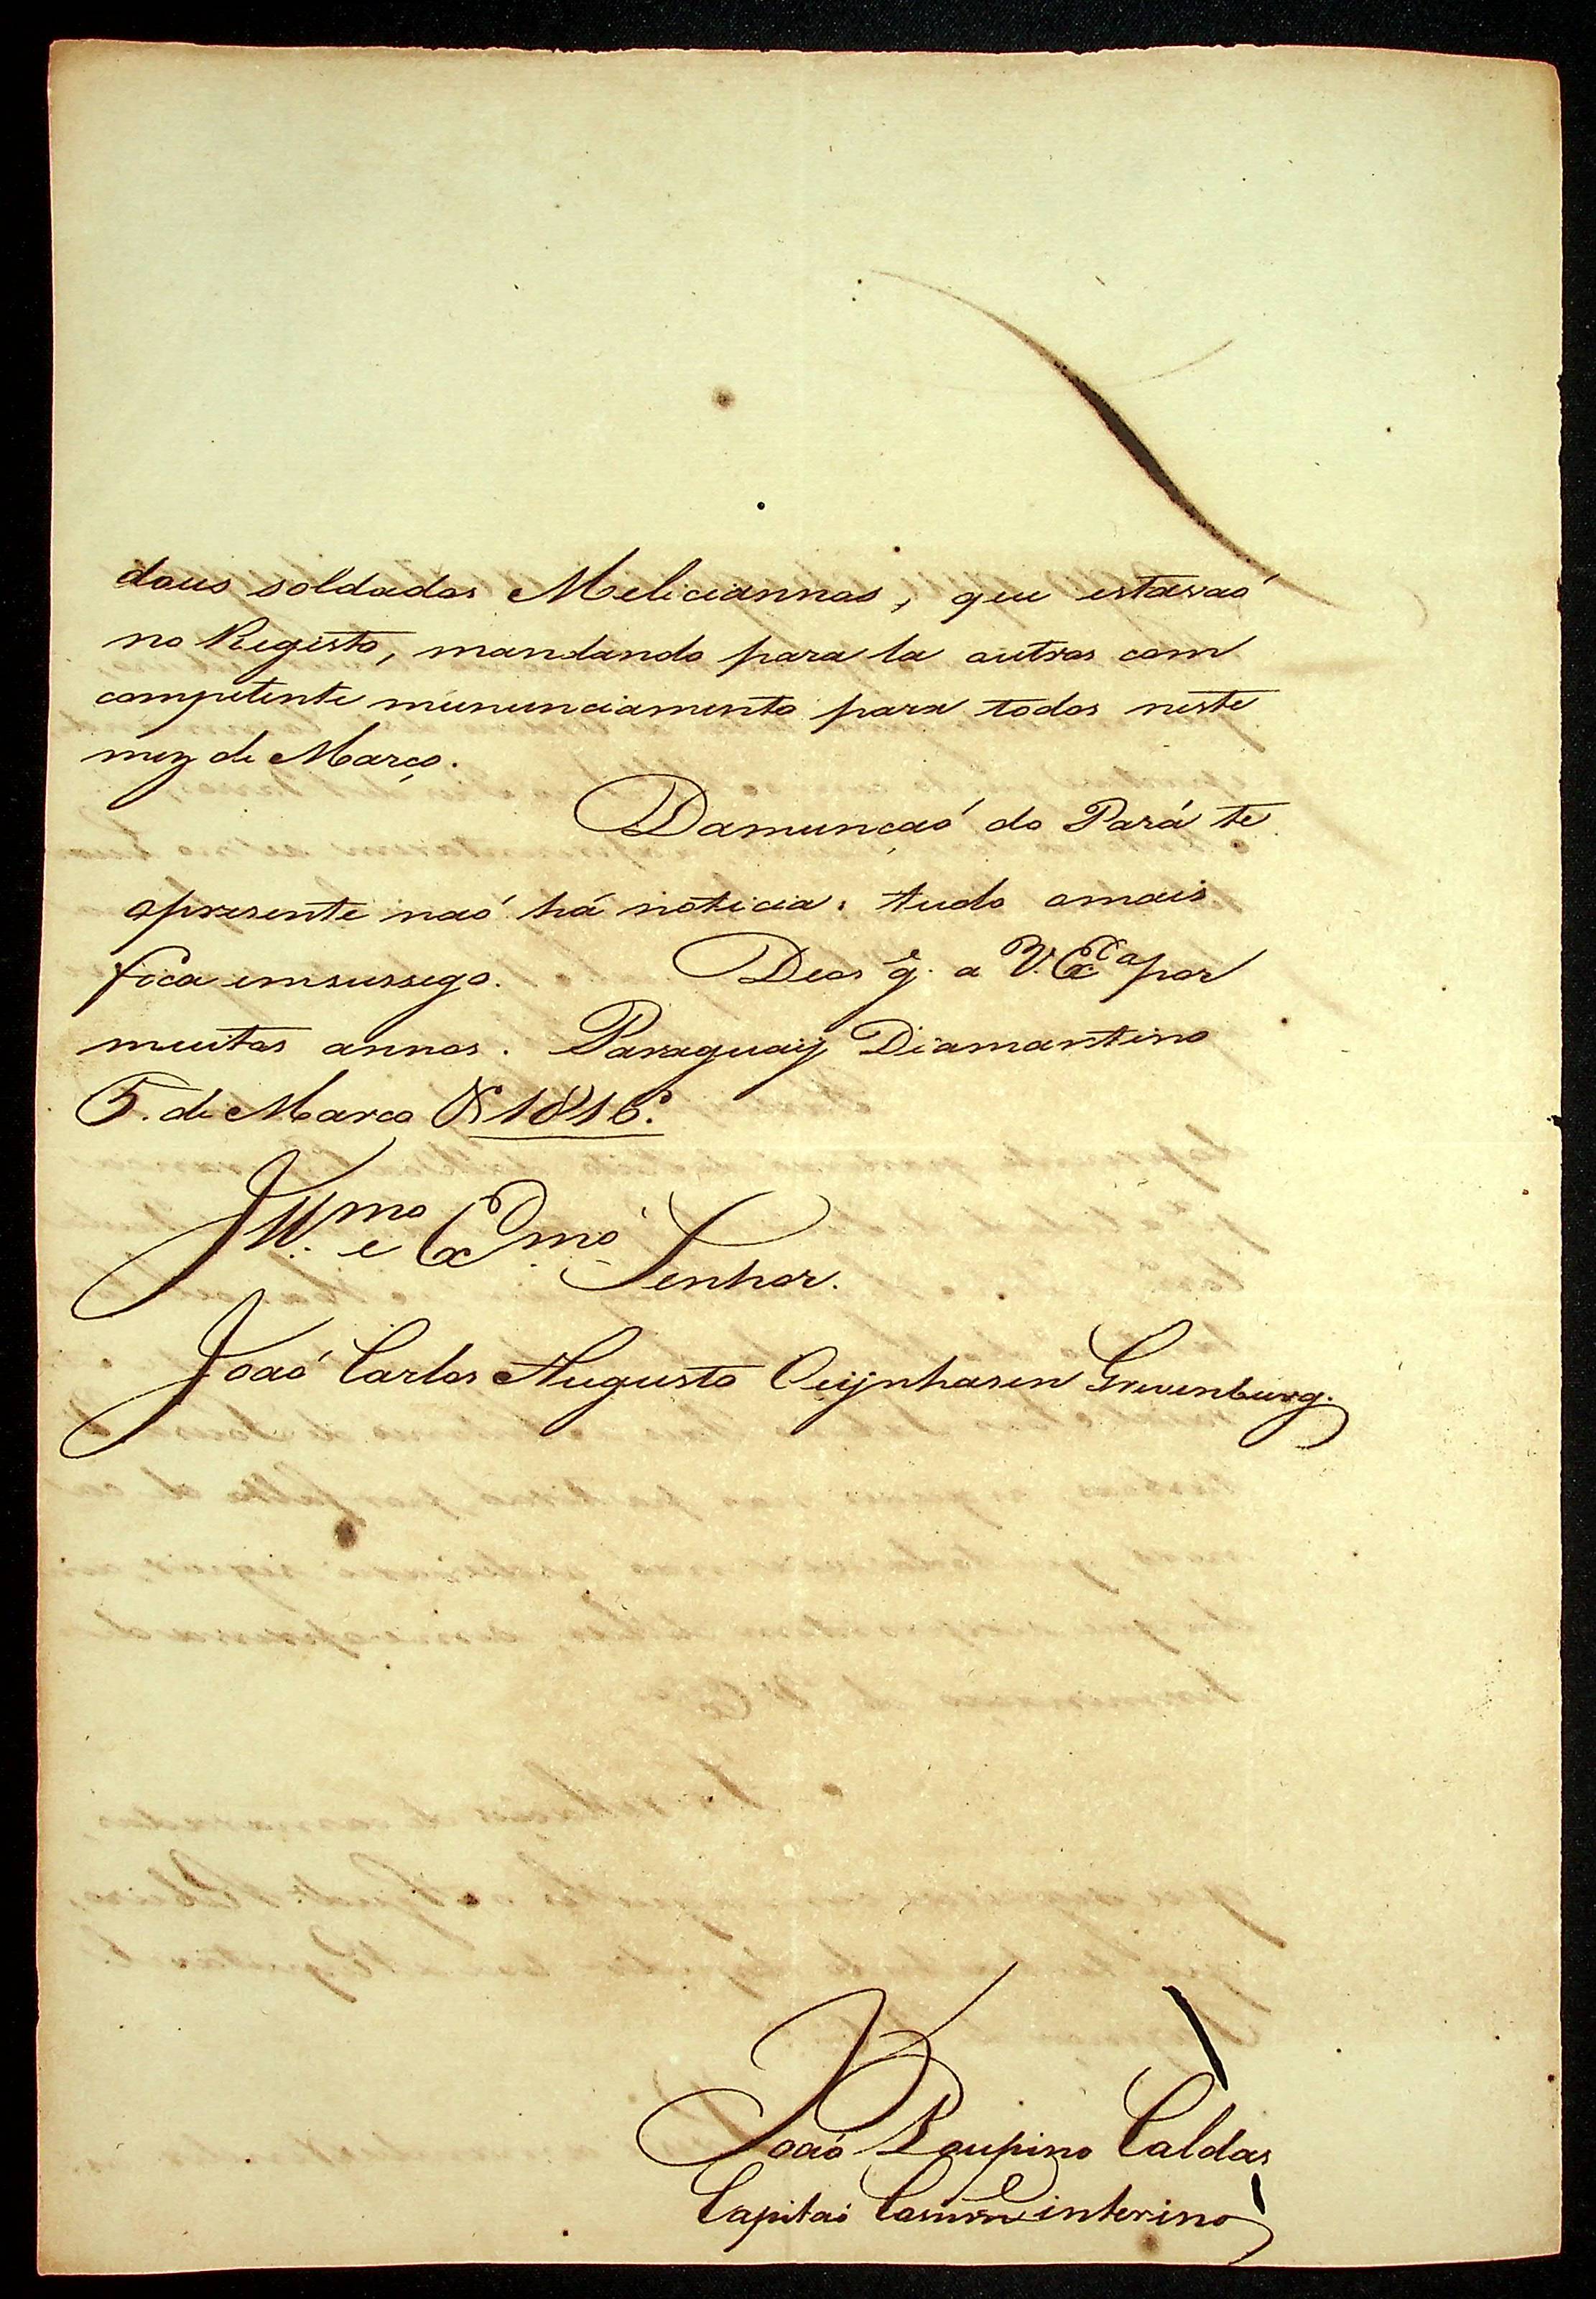 dous soldados Meliciannos, que estavaó
no Registo, mandando para la outros com
competente mununciamento para todos neste
mez de Março.
Damunçaó do Pará te
apresente naó há noticia: tudo omais
fica emsussego. Deos g.e a V. Exc.a por
muitos annos. Paraguay Diamantino
5. de Marco de 1816.
Ill.mo e Ex.mo Senhor.
Joaó Carlos Augusto Oeÿnhasen Grevenburg.
Joaó Poupino Caldas
Capitaó Comm.e interino